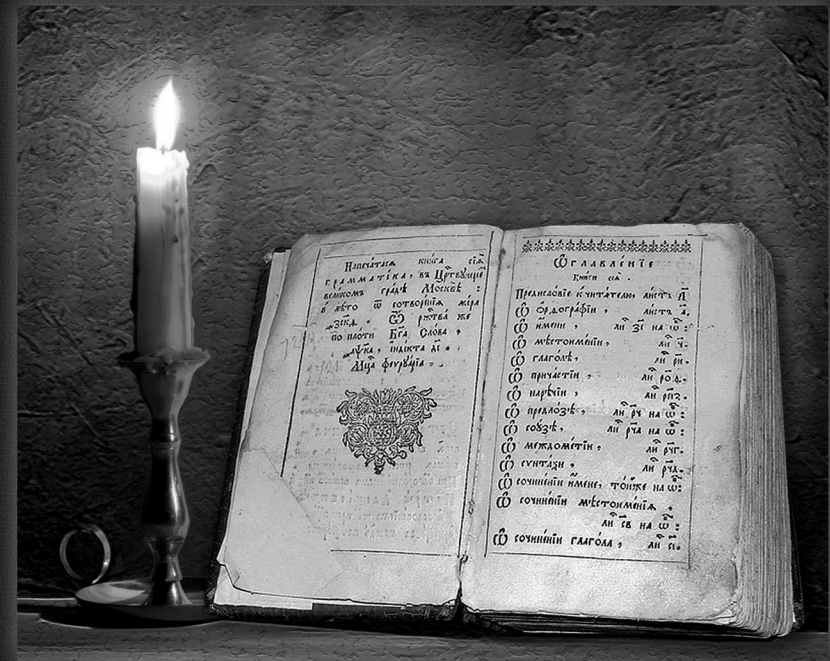 Напеча́тася книга сїѧ̀
грамматі́ка, въ Црⷭ҇твꙋющеⷨ
великомъ гра́дѣ Москвѣ̀ :
в лѣто ѿ сотворе́нїѧ мі́ра
҂зска. Ѿ рж҃тва́ же
по плоти Бг҃а Сло́ва ,
індікта ді .
Мц҃а феврꙋа́рїа ,
Ѡ҆главле́нїе
Книги сеѧ̀ .
Предисло́вїе к чита́телю, ли́стъ
Ѿ ѻ҆рѳогра́фїи , ли́стъ а҃.
Ѿ и́мени , лиⷭ҇ зі҃ на ѡ҆б :
Ѿ мѣстоиме́нїи , лиⷭ҇ ч҃.
Ѿ глаго́лѣ, лиⷭ҇ рн҃.
Ѿ прича́стїи , лиⷭ҇
Ѿ нарѣ́чїи , лиⷭ҇ рпз.
Ѿ предло́зѣ, лиⷭ҇ рч҃ на ѡ҆б :
Ѿ сою́зѣ, лиⷭ҇ рча на ѡ҆б :
Ѿ междоме́тїи , лиⷭ҇ рчг.
Ѿ сѷнта́ѯи , лиⷭ҇ рчд.
Ѿ сочине́нїи и́мене, то́йже на ѡ҆б :
Ѿ сочине́нїи мѣстоиме́нїѧ ,
лиⷭ҇ св҃ на ѡ҆б :
Ѿ сочине́нїи глаго́ла , лиⷭ҇ сі.